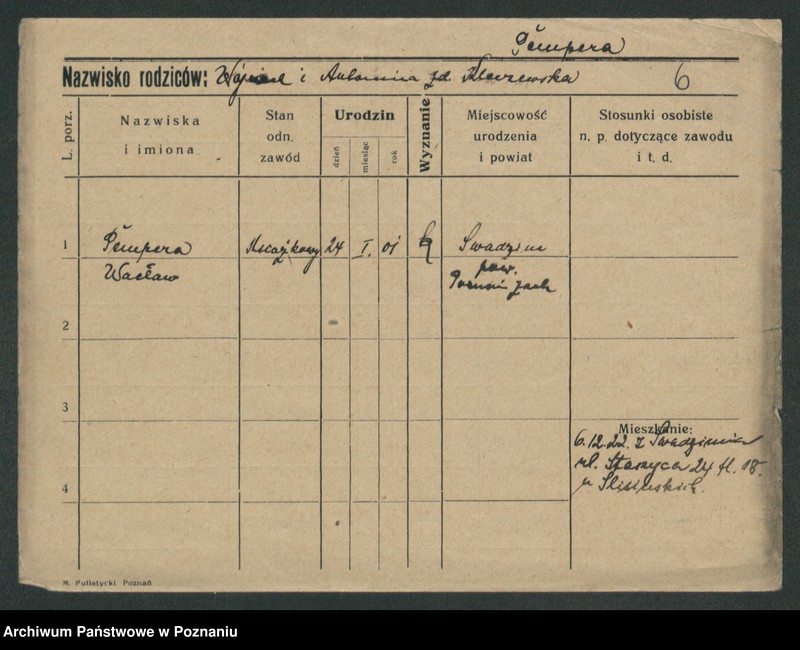 Pempera
Nazwisko rodziców: i Antonina zd.
6
L. porz.
Nazwiska
i imiona
Stan
odn.
zawód
Urodzin
dzień
miesiąc
rok
Wyznanie
Miejscowość
urodzenia
i powiat
Stosunki osobiste
n. p. dotyczące zawodu
i t. d.
1
Pempera
24
I.
01
Wacław
pow.
Poznań zach
2
3
Mieszkanie:
6.12.22. z Swadzimia
ul. 24 II. 18.
4
M. Putiatycki. Poznań
Archiwum Państwowe w Poznaniu